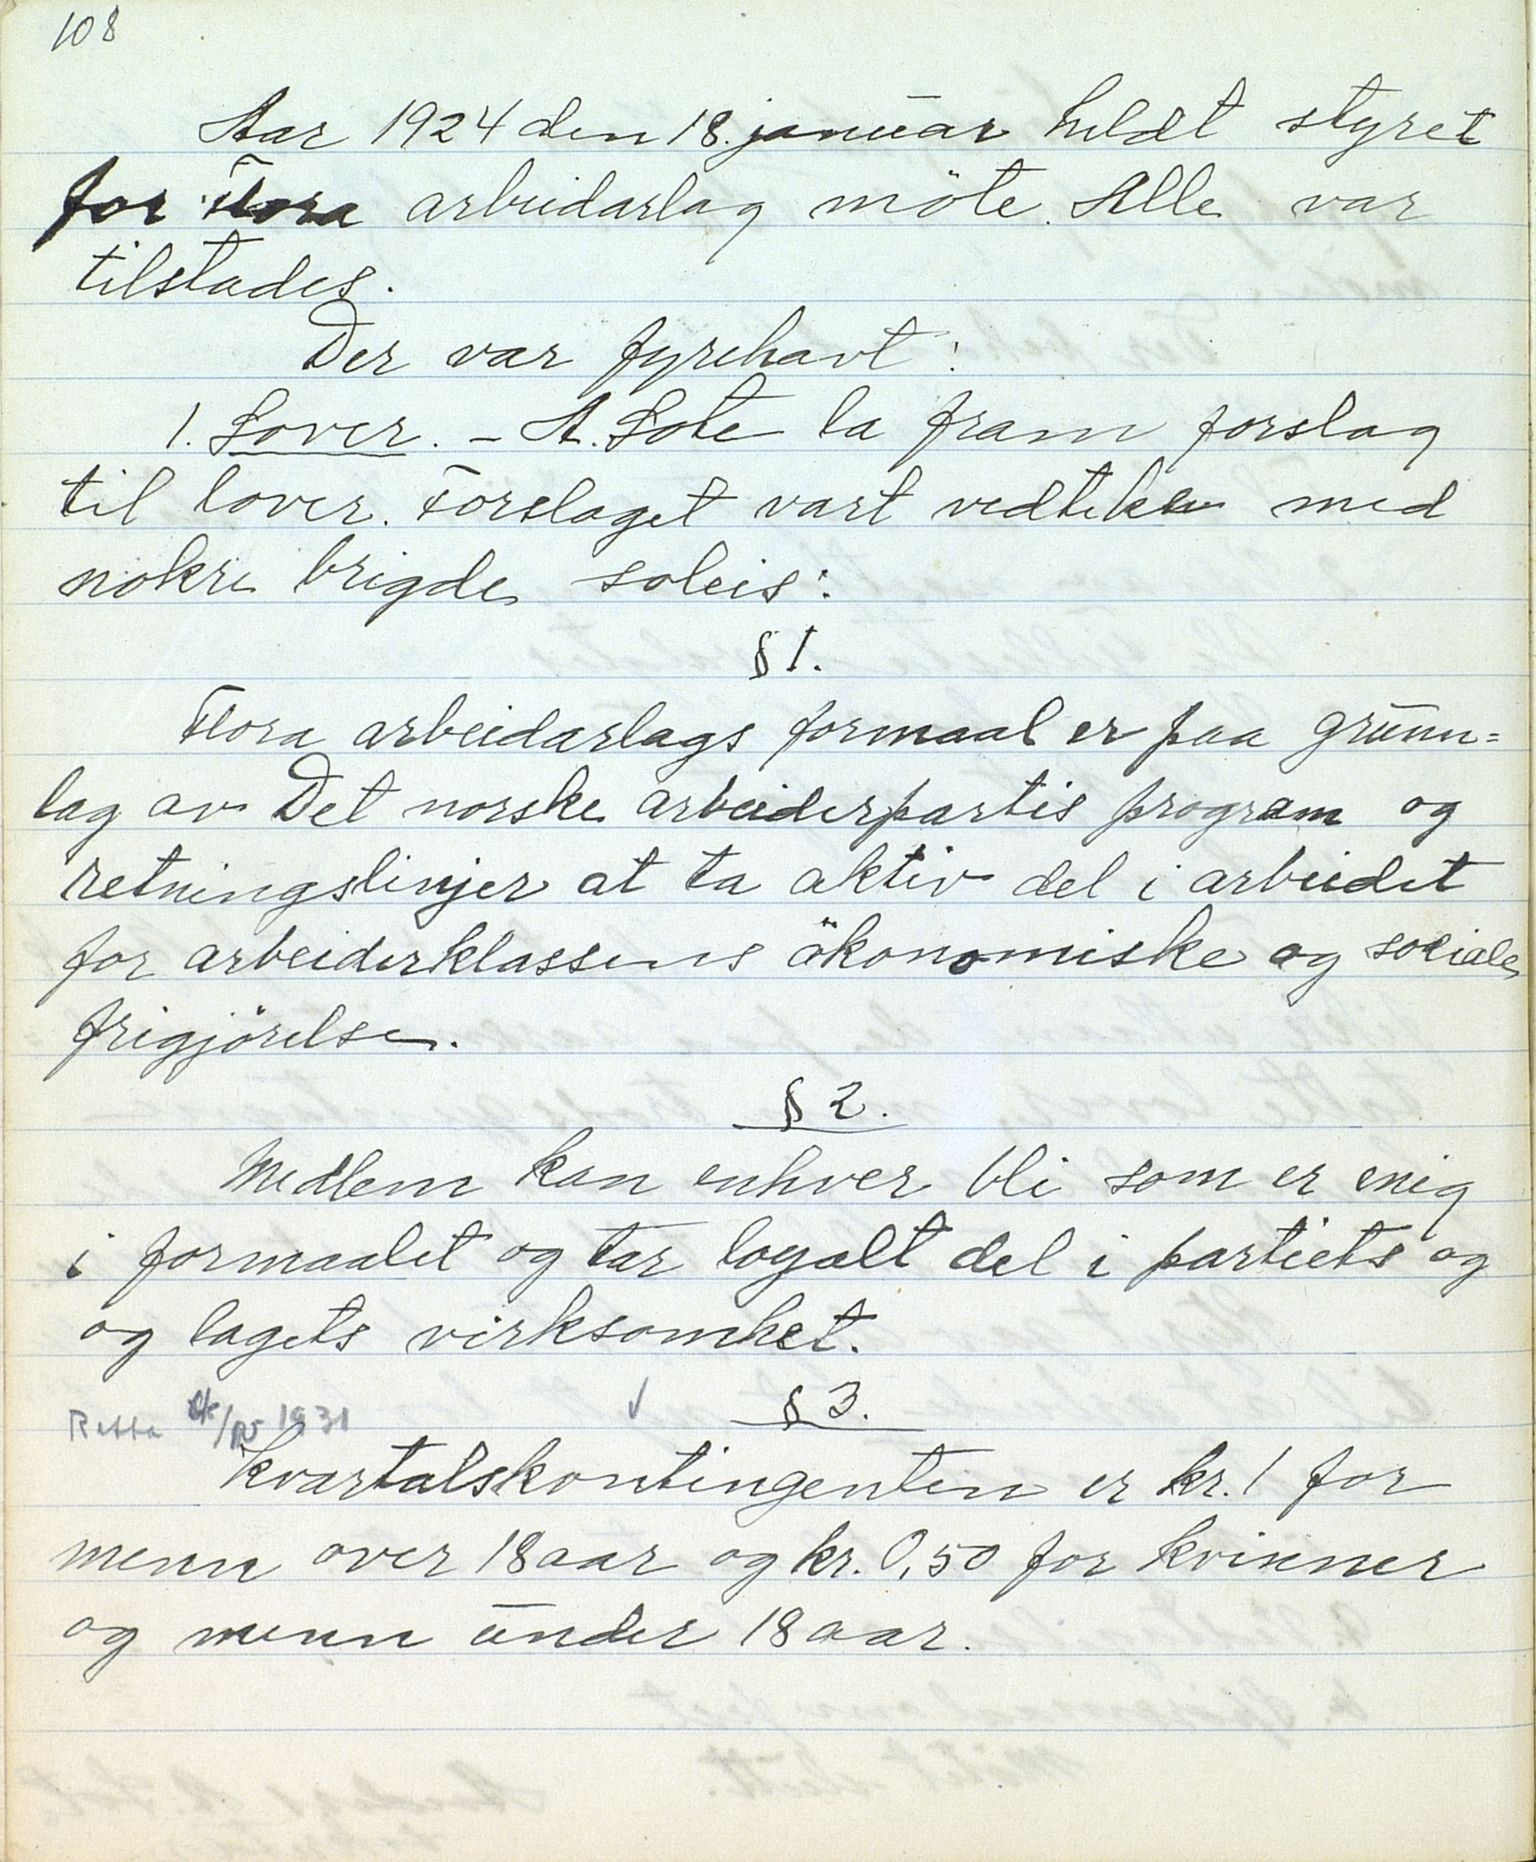 108
Aar 1924 den 18. januar heldt styret
for Flora arbeidarlag möte. Alle var
tilstades.
Der var fyrehavt:
1. Lover. - A. Sote la fram forslag
til lover. Forslaget vart vedteke med
nokre brigde soleis:
§ 1.
Flora arbeidarlags formaal er paa grunn=
lag av Det norske arbeiderpartis program og
retningslinjer at ta aktiv del i arbeidet
for arbeiderklassens ökonomiske og sociale
frigjörelse.
§ 2.
Medlem kan enhver bli som er enig
i formaalet og tar loyalt del i partiets og
og lagets virksomhet.
§ 3.
Retta 1931
Kvartalskontingenten er kr. 1 for
menn over 18 aar og kr. 0,50 for kvinner
og menn under 18 aar.